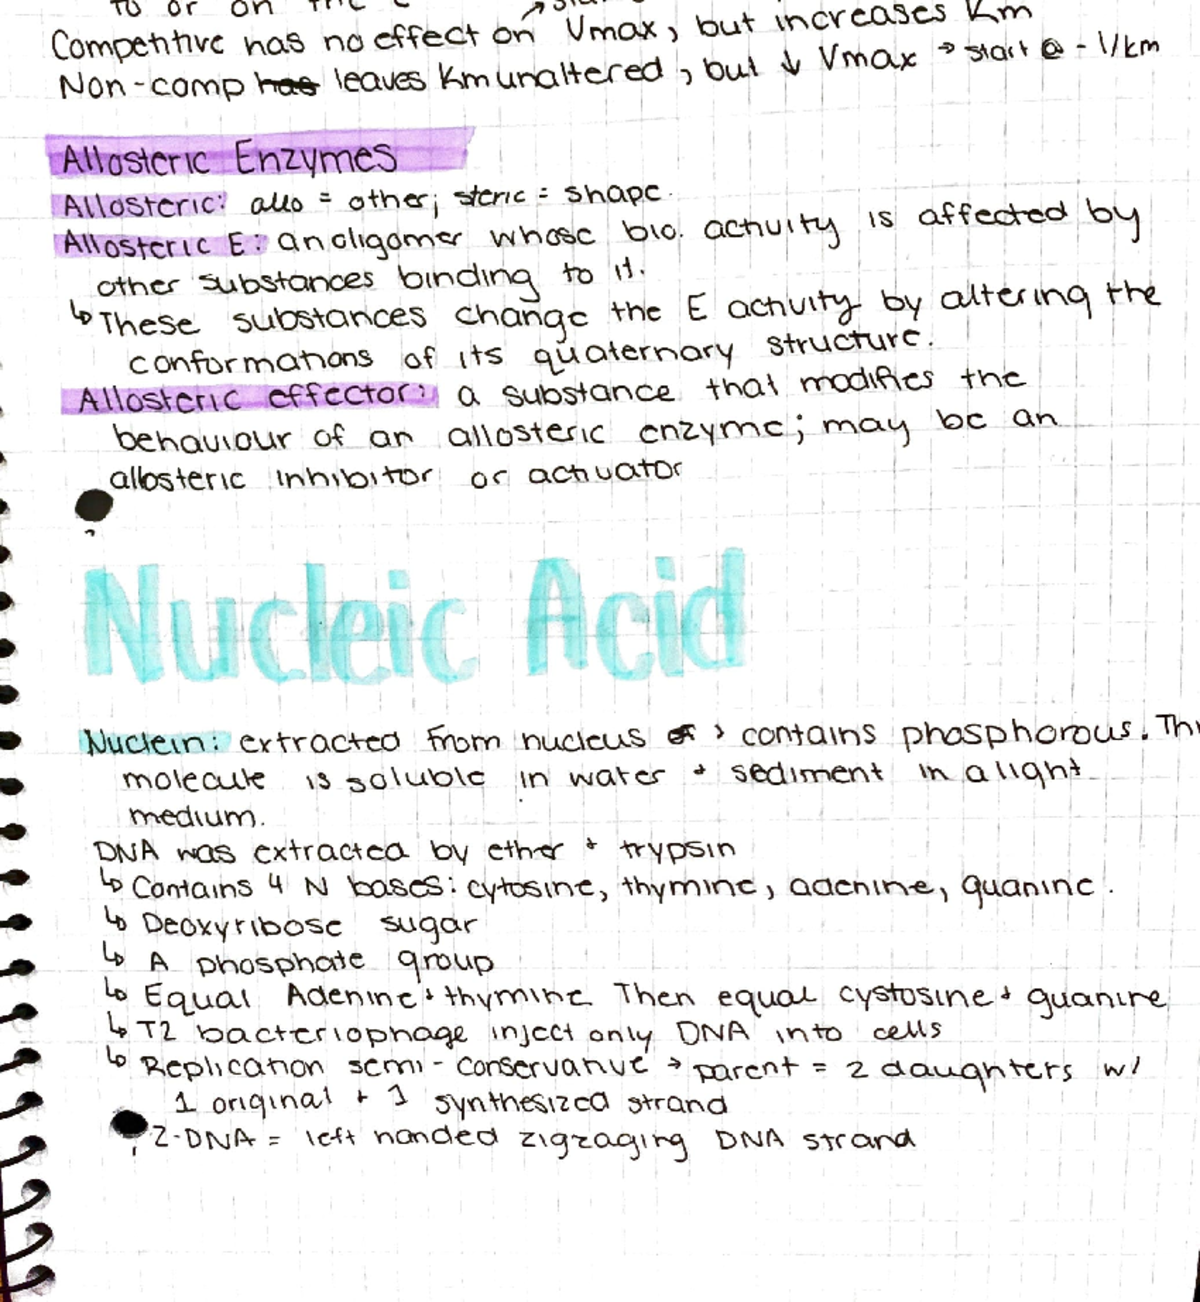 to or on the
Competitive has no effect on Vmax, but increases Km
Non-comp has leaves Km unaltered, but ↓ Vmax → start @ - 1/km
Allosteric Enzymes
Allosteric: allo = other; steric = shape.
Allosteric E: an oligomer whose bio. activity is affected by
other substances binding to it.
↳ These substances change the E activity by altering the
conformations of its quaternary structure.
Allosteric effector: a substance that modifies the
behaviour of an allosteric enzyme; may be an
allosteric inhibitor or activator
Nucleic Acid
Nuclein: extracted from nucleus of ; contains phosphorous. Thi
molecule is soluble in water + sediment in a light
medium.
DNA was extracted by ether + trypsin
↳ Contains 4 N bases: cytosine, thymine, adenine, guanine.
↳ Deoxyribose sugar
↳ A phosphate group
↳ Equal Adenine + thymine Then equal cystosine + guanine
↳ T2 bacteriophage inject only DNA into cells
↳ Replication semi-conservative → parent = 2 daughters w/
1 original + 1 synthesized strand
Z-DNA = left handed zigzaging DNA strand